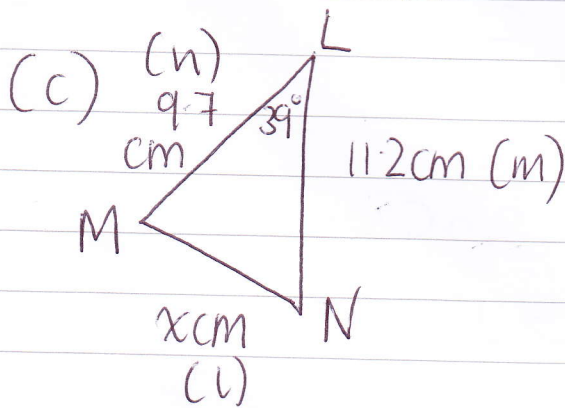 (c)
(n)
9.7
cm
L
39°
11.2cm (m)
M
xcm
(l)
N